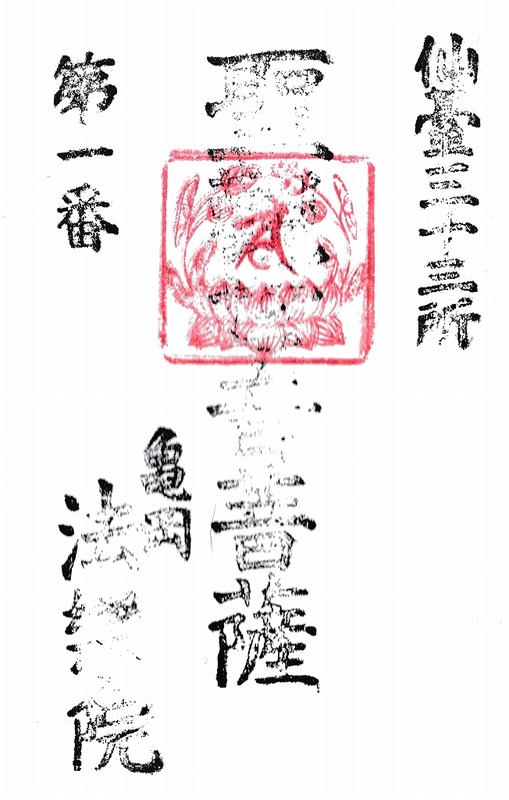 仙臺三十三所
聖音菩薩
第一番
亀岡
法院